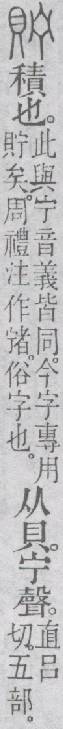 貯
積也。
此與宁音義皆同。今字專用
貯矣。周禮注作 俗字也。
从貝。宁聲。
直呂
切。五部。